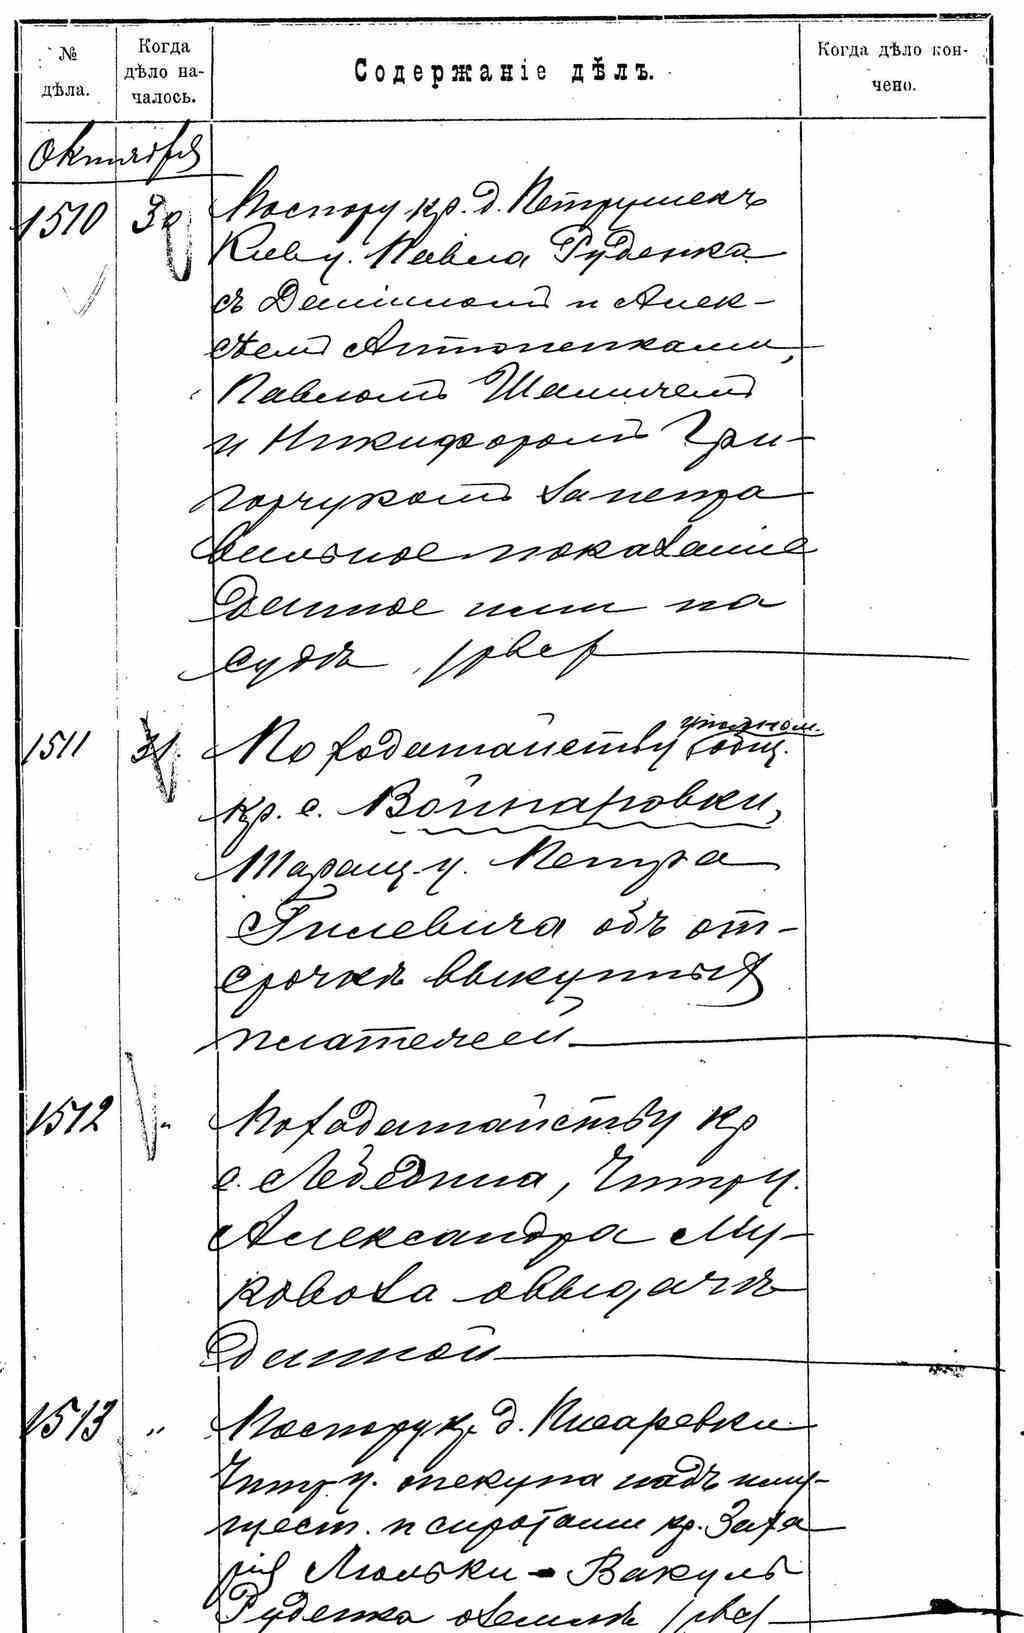 № дѣла.
Когда дѣло на-
чалось.
Содержаніе дѣлъ.
Когда дѣло кон-
чено.
Октября
1510 30 По спору кр. д. Петрушекъ
Киев у. Павла Руденка
съ Даніиломъ и Алек-
сѣемъ Антоненками,
Павломъ
и Никифоромъ Гри-
горчукомъ за непра
вильное показаніе
данное ими на
судѣ
1511 31. По ходатайству уполном. общ.
кр. с. Войнаровки,
Таращ. у. Петра
Гилевича объ от-
срочкѣ выкупныхъ
платежей
1512 „ По ходатайству кр
с. Лебедина, Чигир. у.
Александра Му-
ковоза о выдачѣ
данной
1513 „ По спору кр. д. Писаревки
Чигир. у. опекуна надъ иму-
щест. и сиротами кр. Заха
рія Люльки - Вакулы
Руденка о землѣ